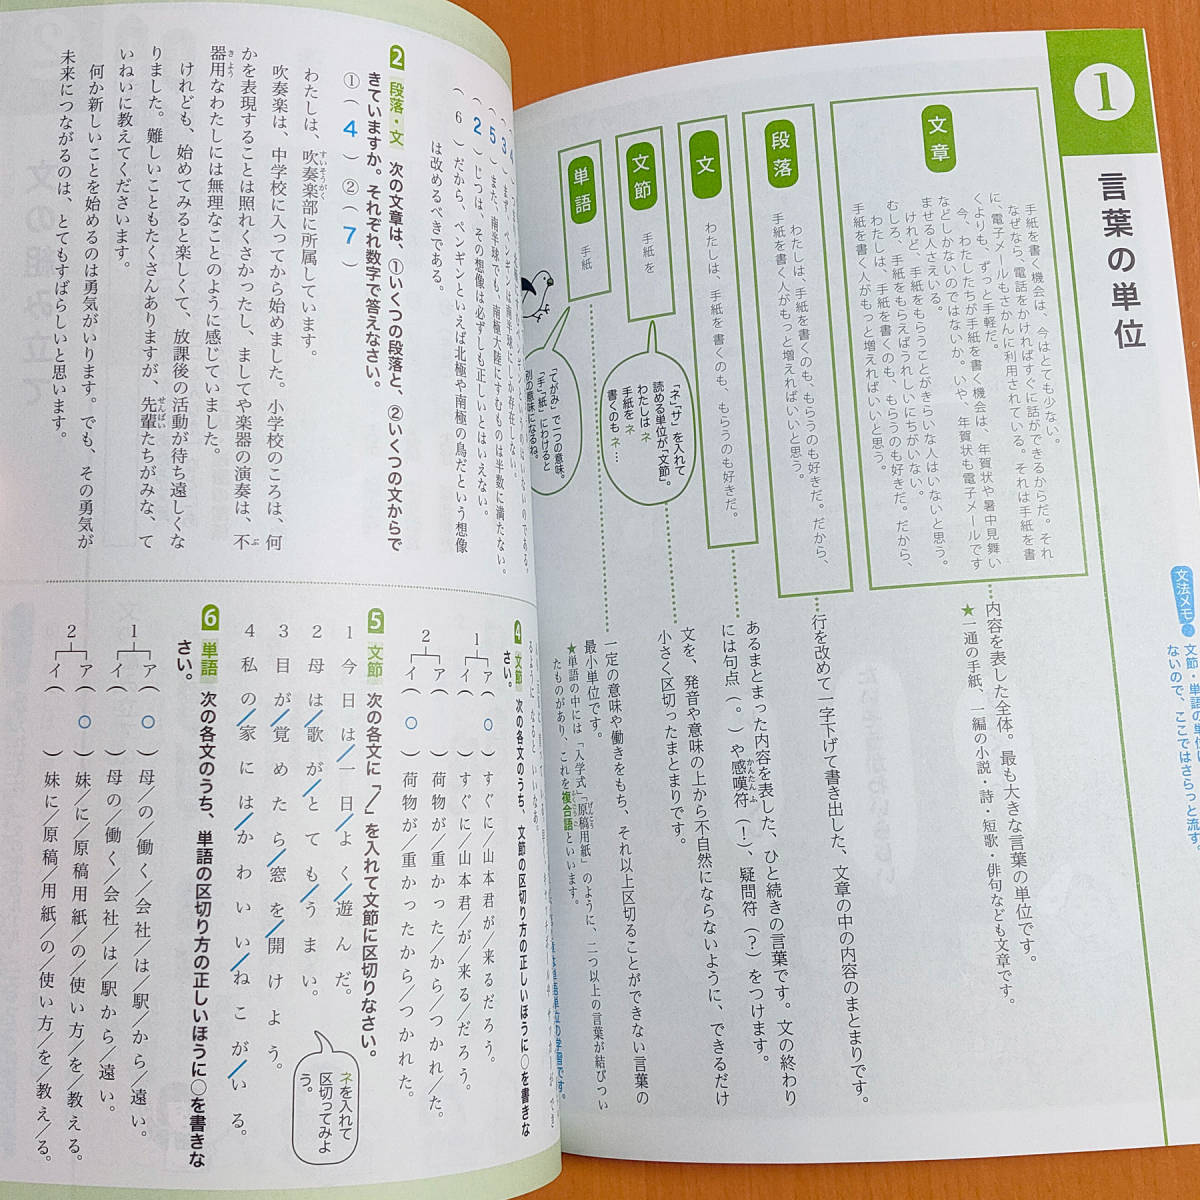 1
言葉の単位
文法メモ
文節・単語の単位に
ないので、ここではさらっと流す。
文章
手紙を書く機会は、今はとても少ない。
なぜなら、電話をかければすぐに話ができるからだ。それ
に、電子メールもさかんに利用されている。それは手紙を書
くよりも、ずっと手軽だ。
今、わたしたちが手紙を書く機会は、年賀状や暑中見舞い
などしかないのではないか。いや、年賀状も電子メールです
ませる人さえいる。
けれど、手紙をもらうことがきらいな人はいないと思う。
むしろ、手紙をもらえばうれしいにちがいない。
わたしは、手紙を書くのも、もらうのも好きだ。だから、
手紙を書く人がもっと増えればいいと思う。
内容を表した全体。最も大きな言葉の単位です。
★一通の手紙、一編の小説・詩・短歌・俳句なども文章です。
段落
わたしは、手紙を書くのも、もらうのも好きだ。だから、
手紙を書く人がもっと増えればいいと思う。
行を改めて一字下げて書き出した、文章の中の内容のまとまりです。
文
わたしは、手紙を書くのも、もらうのも好きだ。
あるまとまった内容を表した、ひと続きの言葉です。文の終わり
には句点（。）や感嘆符（！）、疑問符（？）をつけます。
かんたんふ
文節
手紙を
「ネ」「サ」を入れて
読める単位が「文節」。
わたしは ネ
手紙を ネ
書くのも ネ…
文を、発音や意味の上から不自然にならないように、できるだけ
小さく区切ったまとまりです。
単語
手紙
「てがみ」で一つの意味。
「手」「紙」にわけると
別の意味になるね。
一定の意味や働きをもち、それ以上区切ることができない言葉の
最小単位です。
★単語の中には「入学式」「原稿用紙」のように、二つ以上の言葉が結びつい
たものがあり、これを複合語といいます。
は単語単位の学習です。
（3）まず、ペンギンは南半球にしか存在しない。
（5）また、南半球でも、南極大陸にすむものは半数に満たない。
（2）じつは、その想像は必ずしも正しいとはいえない。
（6）だから、ペンギンといえば北極や南極の鳥だという想像
は改めるべきである。
2 段落・文 次の文章は、①いくつの段落と、②いくつの文からで
きていますか。それぞれ数字で答えなさい。
①（4）②（7）
わたしは、吹奏楽部に所属しています。
すいそうがく
吹奏楽は、中学校に入ってから始めました。小学校のころは、何
かを表現することは照れくさかったし、ましてや楽器の演奏は、不
ぶ
器用なわたしには無理なことのように感じていました。
きよう
けれども、始めてみると楽しくて、放課後の活動が待ち遠しくな
りました。難しいこともたくさんありますが、先輩たちがみな、て
せんぱい
いねいに教えてくださいます。
何か新しいことを始めるのは勇気がいります。でも、その勇気が
未来につながるのは、とてもすばらしいと思います。
4 文節 次の各文のうち、文節の区切り方の正しいほうに○を書きな
さい。
1 ア（○）すぐに／山本君が／来るだろう。
イ（ ）すぐに／山本君／が／来る／だろう。
2 ア（ ）荷物が／重かった／から／つかれ／た。
イ（○）荷物が／重かったから／つかれた。
5 文節 次の各文に「／」を入れて文節に区切りなさい。
1 今日は／一日／よく／遊んだ。
2 母は／歌が／とても／うまい。
3 目が／覚めたら／窓を／開けよう。
4 私の／家には／かわいい／ねこが／いる。
ネを入れて
区切ってみよ
う。
6 単語 次の各文のうち、単語の区切り方の正しいほうに○を書きな
さい。
1 ア（○）母／の／働く／会社／は／駅／から／遠い。
イ（ ）母の／働く／会社／は／駅から／遠い。
2 ア（○）妹／に／原稿用紙／の／使い方／を／教える。
イ（ ）妹に／原稿／用紙／の／使い方／を／教え／る。